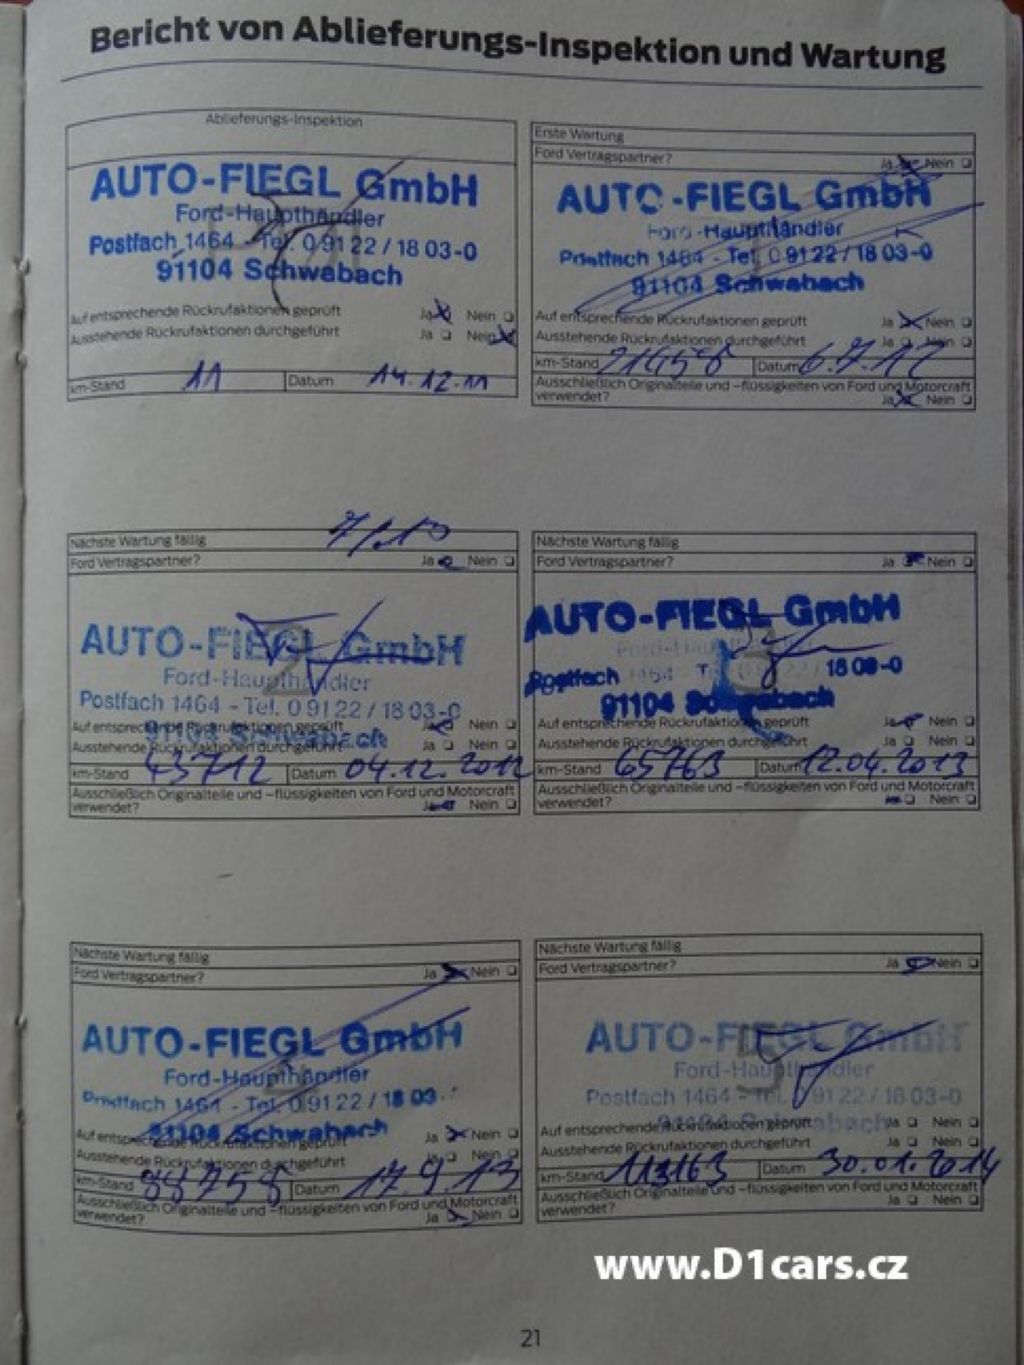 Bericht von Ablieferungs-Inspektion und Wartung
Ablieferungs-Inspektion
AUTO-FIEGL GmbH
Ford-Haupthändler
Postfach 1464 - Tel. 0 91 22 / 18 03-0
91104 Schwabach
Auf entsprechende Rückrufaktionen geprüft Ja Nein
Ausstehende Rückrufaktionen durchgeführt Ja Nein
km-Stand 11 Datum 14.12.11
Erste Wartung
Ford Vertragspartner? Ja Nein
AUTO-FIEGL GmbH
Ford-Haupthändler
Postfach 1464 - Tel. 0 91 22 / 18 03-0
91104 Schwabach
Auf entsprechende Rückrufaktionen geprüft Ja Nein
Ausstehende Rückrufaktionen durchgeführt Ja Nein
km-Stand 21458 Datum 6.7.12
Ausschließlich Originalteile und -flüssigkeiten von Ford und Motorcraft
verwendet? Ja Nein
Nächste Wartung fällig
Ford Vertragspartner? Ja Nein
AUTO-FIEGL GmbH
Ford-Haupthändler
Postfach 1464 - Tel. 0 91 22 / 18 03-0
91104 Schwabach
Auf entsprechende Rückrufaktionen geprüft Ja Nein
Ausstehende Rückrufaktionen durchgeführt Ja Nein
km-Stand 43712 Datum 04.12.2012
Ausschließlich Originalteile und -flüssigkeiten von Ford und Motorcraft
verwendet? Ja Nein
Nächste Wartung fällig
Ford Vertragspartner? Ja Nein
AUTO-FIEGL GmbH
Ford-Haupthändler
Postfach 1464 - Tel. 0 91 22 / 18 03-0
91104 Schwabach
Auf entsprechende Rückrufaktionen geprüft Ja Nein
Ausstehende Rückrufaktionen durchgeführt Ja Nein
km-Stand 65763 Datum 12.04.2013
Ausschließlich Originalteile und -flüssigkeiten von Ford und Motorcraft
verwendet? Ja Nein
Nächste Wartung fällig
Ford Vertragspartner? Ja Nein
AUTO-FIEGL GmbH
Ford-Haupthändler
Postfach 1464 - Tel. 0 91 22 / 18 03
91104 Schwabach
Auf entsprechende Rückrufaktionen geprüft Ja Nein
Ausstehende Rückrufaktionen durchgeführt Ja Nein
km-Stand 88758 Datum 17.9.13
Ausschließlich Originalteile und -flüssigkeiten von Ford und Motorcraft
verwendet? Ja Nein
Nächste Wartung fällig
Ford Vertragspartner? Ja Nein
AUTO-FIEGL GmbH
Ford-Haupthändler
Postfach 1464 - Tel. 0 91 22 / 18 03-0
91104 Schwabach
Auf entsprechende Rückrufaktionen geprüft Ja Nein
Ausstehende Rückrufaktionen durchgeführt Ja Nein
km-Stand 113163 Datum 30.01.2014
Ausschließlich Originalteile und -flüssigkeiten von Ford und Motorcraft
verwendet? Ja Nein
www.D1cars.cz
21